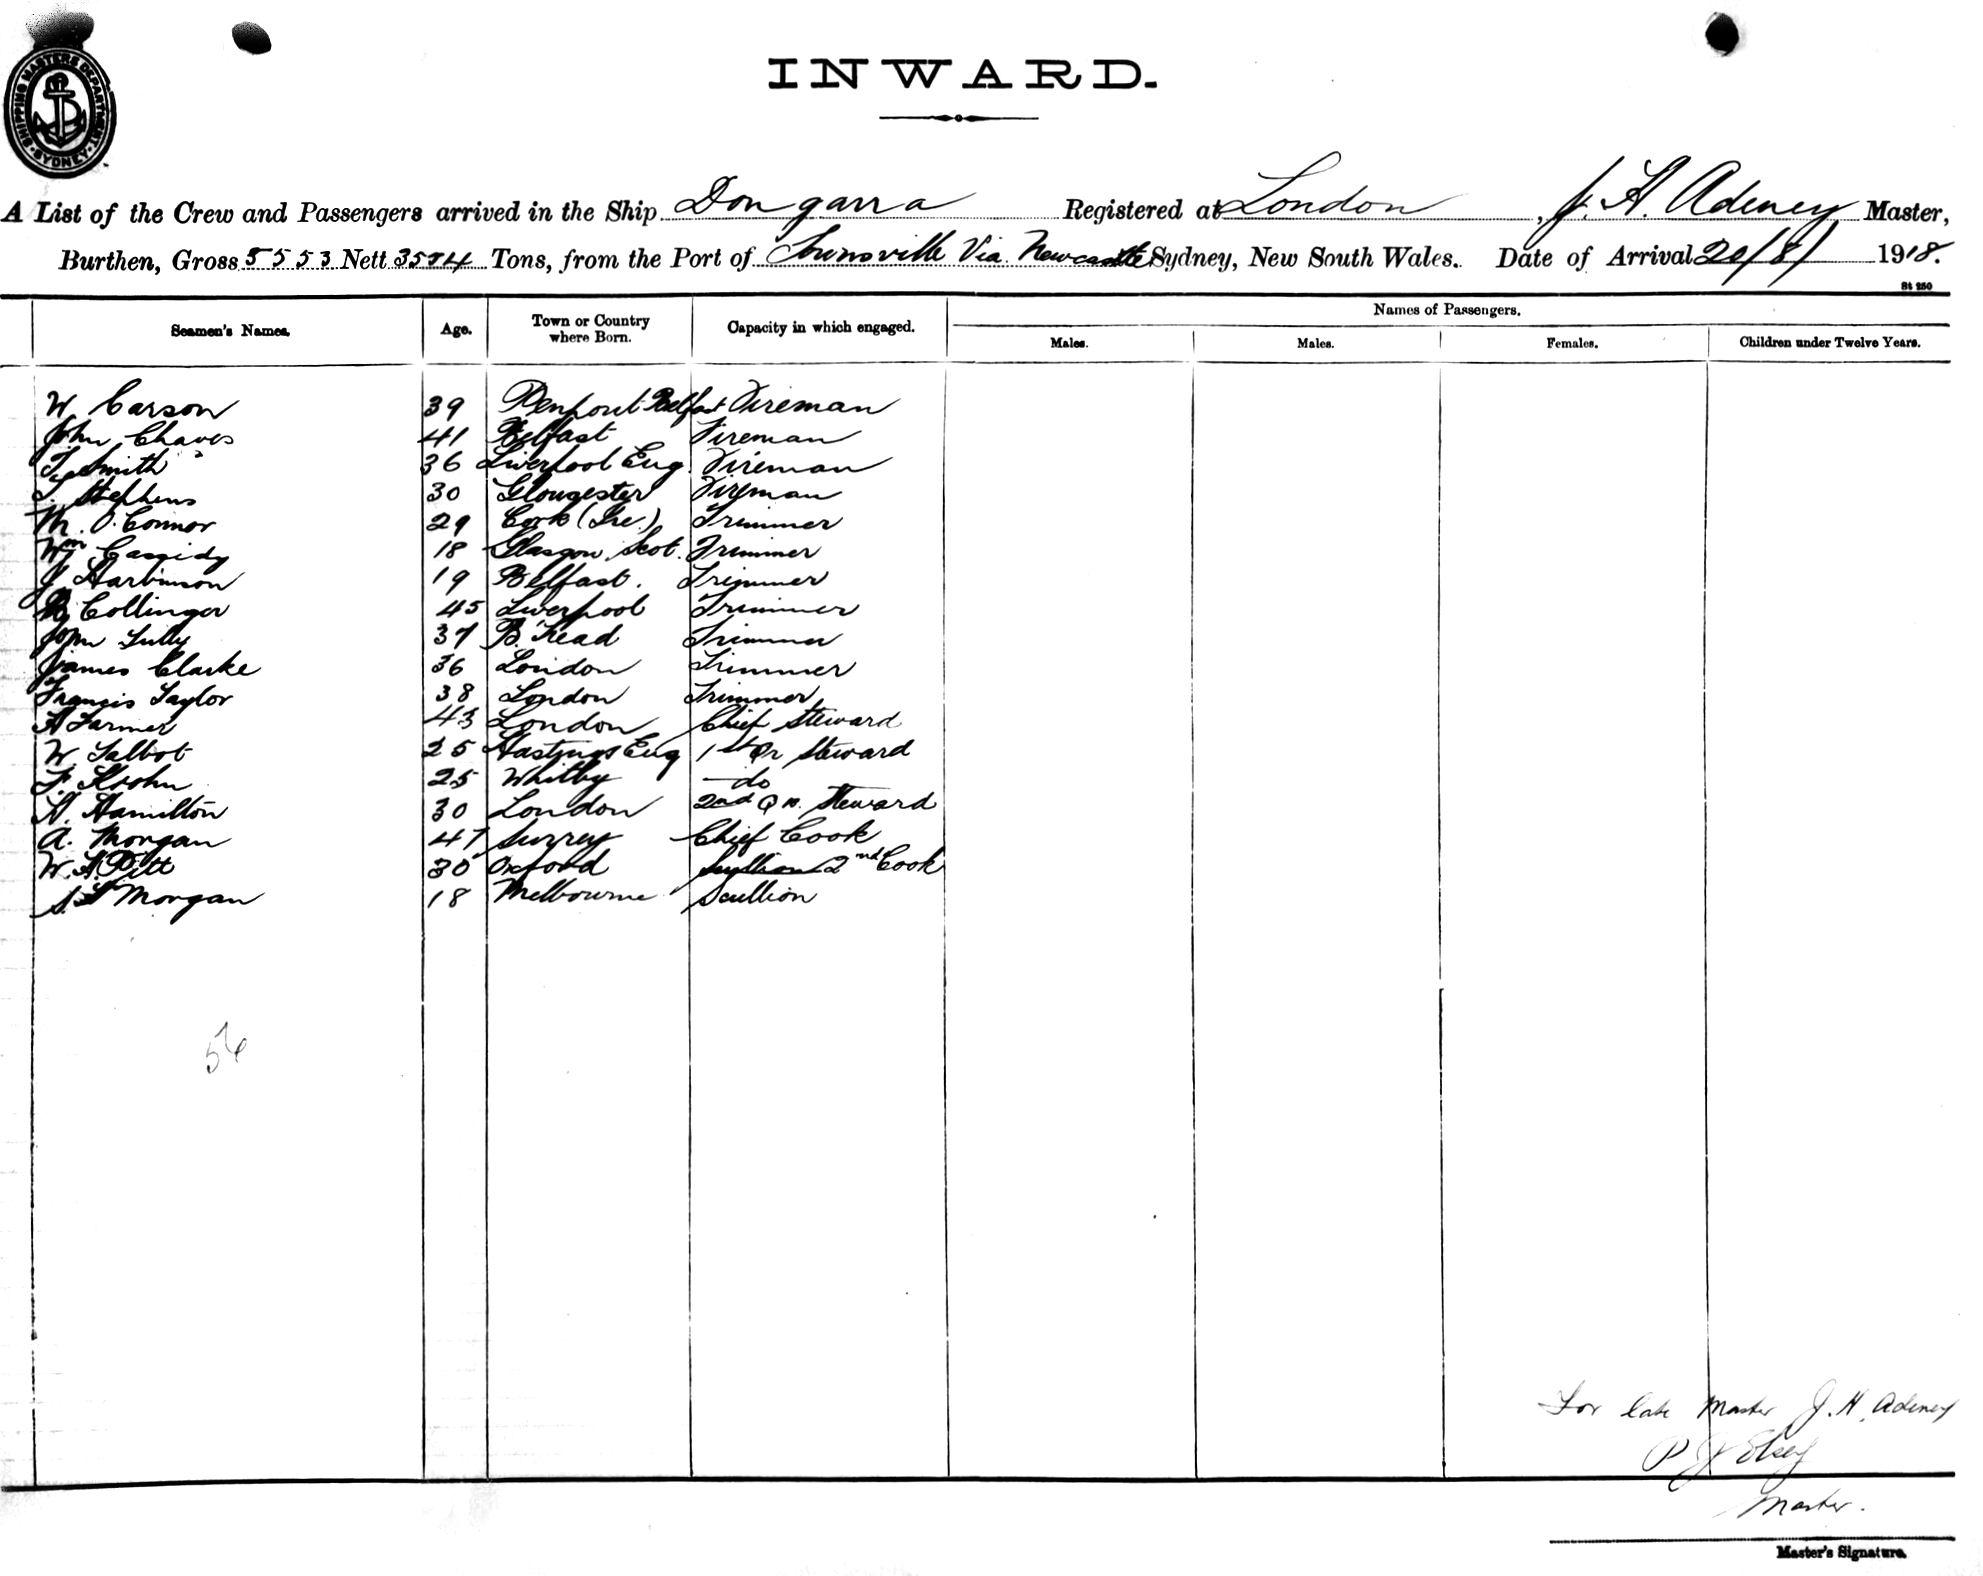 SHIPPING MASTERS DEPARTMENT
SYDNEY
INWARD.
A List of the Crew and Passengers arrived in the Ship Dongarra Registered at London, J. H. Adeney Master,
Burthen, Gross 5553 Nett 3574 Tons, from the Port of Townsville Via Newcastle Sydney, New South Wales. Date of Arrival 20/8/ 1918.
St 250
Seamen's Names. Age. Town or Country where Born. Capacity in which engaged. Names of Passengers.
Males. Males. Females. Children under Twelve Years.
W Carson 39 Belfast Fireman
John Chaves 41 Belfast Fireman
T. Smith 36 Liverpool Eng. Fireman
T. Stephens 30 Gloucester Fireman
M. O'Connor 29 Cork (Ire.) Trimmer
Wm Cassidy 18 Glasgow Scot. Trimmer
J Harbinson 19 Belfast. Trimmer
Collinger 45 Liverpool Trimmer
John Tully 37 B'Head Trimmer
James Clarke 36 London Trimmer
Francis Taylor 38 London Trimmer
A Farmer 43 London Chief Steward
W. Talbot 25 Hastings Eng 1st Steward
F. Krohn 25 Whitby do
H. Hamilton 30 London 2nd Steward
A. Morgan 47 Surrey Chief Cook
W. H. Pitt 30 Oxford Scullion 2nd Cook
S. Morgan 18 Melbourne Scullion
56
For late Master J. H. Adeney
P J Elsey
Master.
Master's Signature.